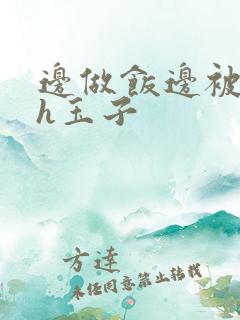 邊做飯邊被
h玉子
方達
未任同意禁止转载